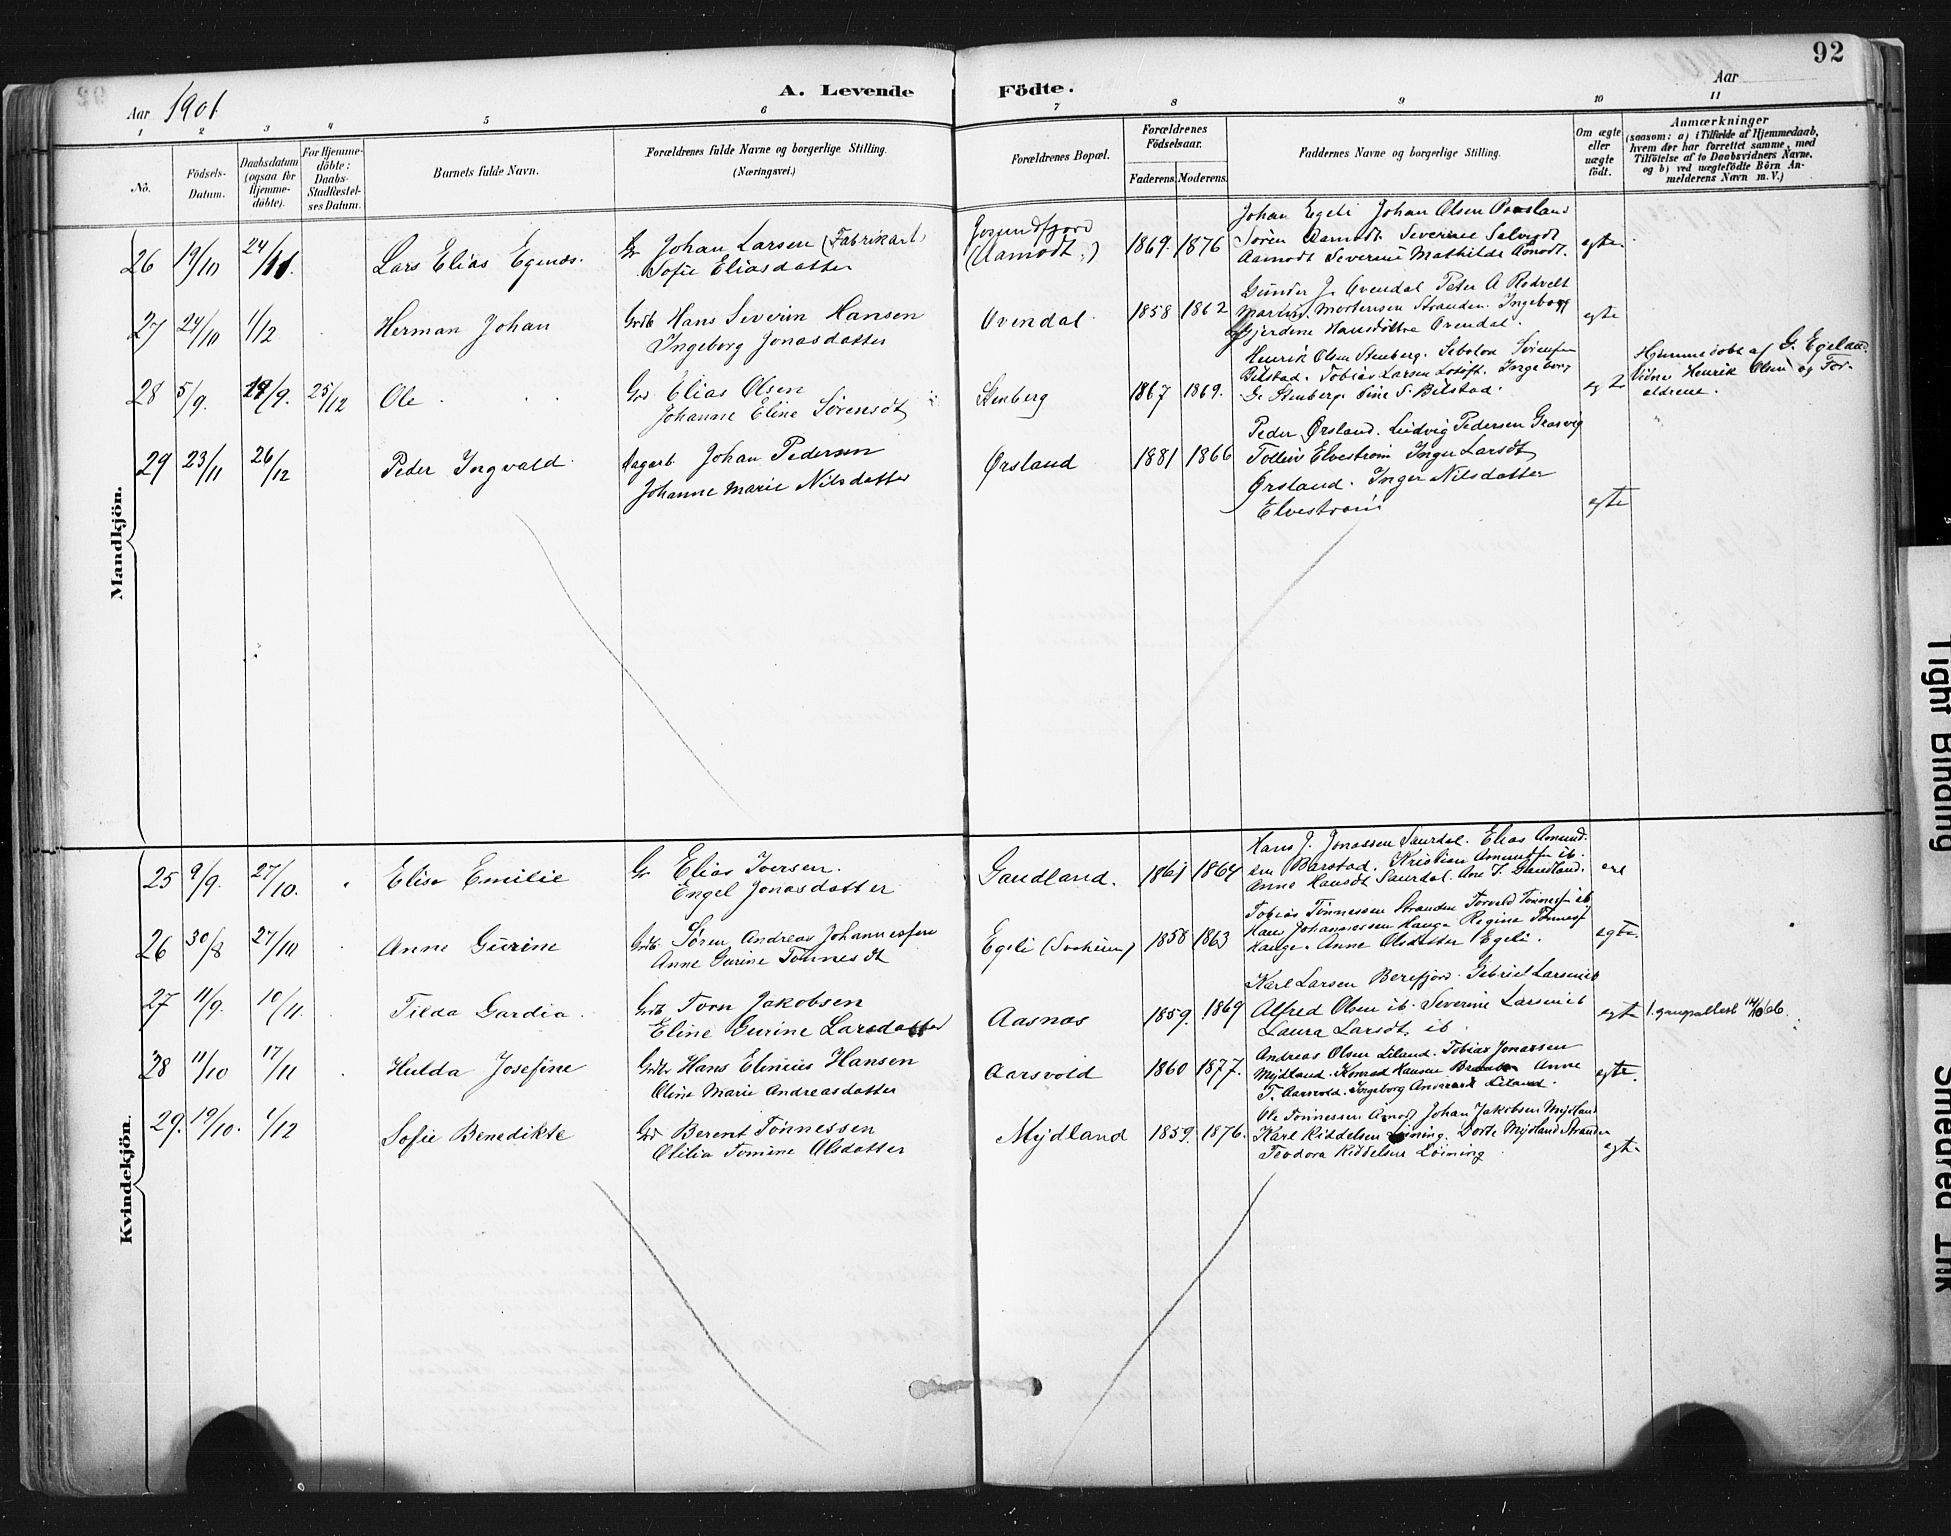 92
Aar 1901 A. Levende Födte. Aar
1 2 3 4 5 6 7 8 9 10 11
No.
Födsels-Datum.
Daabsdatum (ogsaa for Hjemme-döbte).
For Hjemme-döbte: Daabs-Stadfæstel-ses Datum.
Barnets fulde Navn.
Forældrenes fulde Navne og borgerlige Stilling.
(Næringsvei.)
Forældrenes Bopæl.
Forældrenes Födselsaar.
Faderens Moderens.
Faddernes Navne og borgerlige Stilling.
Om ægte eller uægte födt.
Anmærkninger
(saasom: a) i Tilfælde af Hjemmedaab,
hvem der har forrettet samme, med
Tilföielse af to Daabsvidners Navne,
og b) ved uægtefödte Börn An-
melderens Navn m. V.)
Mandkjön.
26 19/10 24/11. Lars Elias Egenæs. Johan Larsen (Fabrikarb) Sofie Eliasdatter (Aamodt.) 1869. 1876
Johan Egeli Johan Olsen
Søren Aamodt Severine
Aamodt Severine Mathilde Aamodt. egte.
27 24/10 1/12 Herman Johan Grdb Hans Severin Hansen Ingeborg Jonasdatter Ovendal 1858 1862
Gunder J. Ovendal Peter A Rødvelt
Martin Mortensen Stranden. Ingeborg
Gjerdine Hansdøttre Ovendal. egte
28 5/9. 19/9. 25/12 Ole Elias Olsen Johanne Eline Sørensdt Stenberg 1867 1869.
Henrik Olsen Stenberg. Sørensen
Bilstad. Tobias Larsen Ingeborg
G. Stenberg. Sine S. Bilstad. egte
Hjemmedøbt af G. Egeland.
Vidne Henrik Olsen og For-
ældrene.
29 23/11 26/12 Peder Ingvald Dagarb. Johan Pedersen Johanne Marie Nilsdatter Ørsland 1881 1866
Peder Ørsland. Ludvig Pedersen
Tolleiv Elvestrøm Inger Larsdt
Ørsland. Inger Nilsdatter
Elvestrøm egte
Kvindekjön.
25 9/9. 27/10. Elise Emilie Elias Iversen. Engel Jonasdatter Gaudland. 1861 1864
Hans J. Jonassen Saurdal. Elias Amund-
sen Barstad. Kristian Amundsen ib.
Anne Hansdt Saurdal. Ane T. Gaudland.
26 30/8 27/10 Anne Gurine Grdb. Søren Andreas Johannessen Anne Gurine Tønnesdt Egeli (Sokheim) 1858 1863
Tobias Tønnessen Stranden Torvald Tønnessen ib
Hans Johannessen Hauge Regine Tønnesdt
Hauge. Anne Olsdatter Egeli. egte.
27 11/9. 10/11. Tilda Gardia. Grdb Torn Jakobsen Eline Gurine Larsdatter Aasnas 1859. 1869
Karl Larsen Berefjord. Gabriel Larsen ib
Alfred Olsen ib. Severine Larsen ib
Laura Larsdt. ib. egte
28 11/10 17/11 Hulda Josefine Grdbr Hans Elinius Hansen Oline Marie Andreasdatter Aarsvold 1860 1877.
Andreas Olsen Liland. Tobias Jonassen
Mydland. Konrad Hansen Anne
T. Aarsvold. Ingeborg Liland. egte.
29. 19/10. 1/12 Sofie Benedikte Berent Tønnessen Olilia Tomine Olsdatter Mydland 1859. 1876.
Ole Tønnessen Amod Johan Jakobsen Mydland
Karl Riddelsen Løining. Dorte Mydland Stranden
Teodora Riddelsen Løining egte.
Tight Binding
Smeared Ink